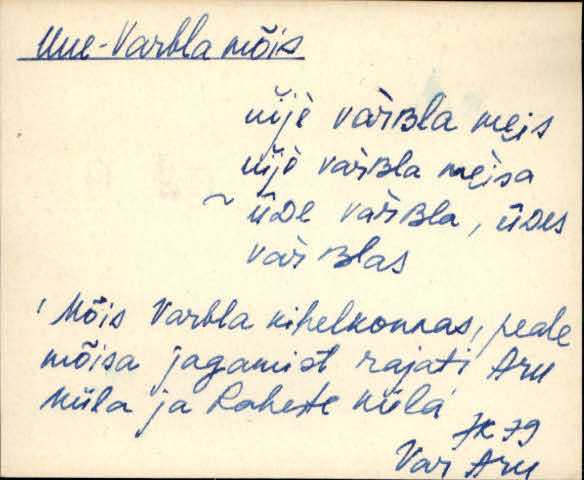 Uue-Varbla mõis
üijè vàrʙla męis
üijè vàrʙla męisa
~ üᴅe vàrʙla, üᴅes
vàrʙlas
' Mõis Varbla kihelkonnas, peale
mõisa jagamist rajati Aru
küla ja Raheste küla
JK 79
Var Aru